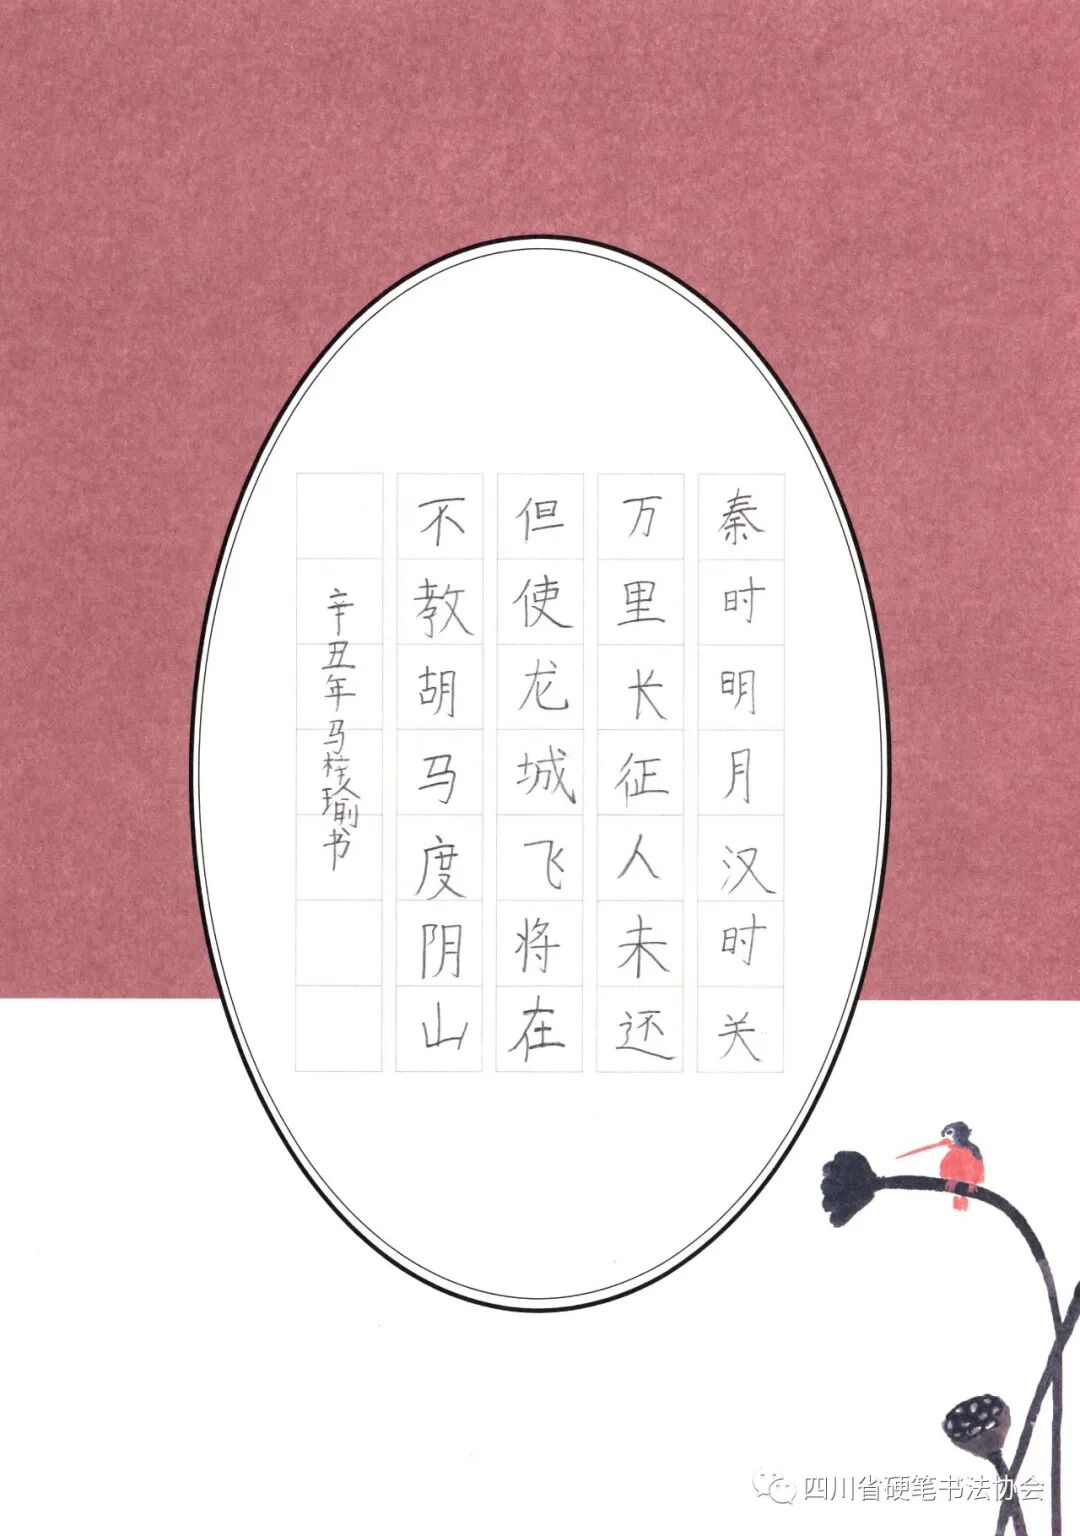 秦时明月汉时关
万里长征人未还
但使龙城飞将在
不教胡马度阴山
辛丑年马桂瑜书
四川省硬笔书法协会